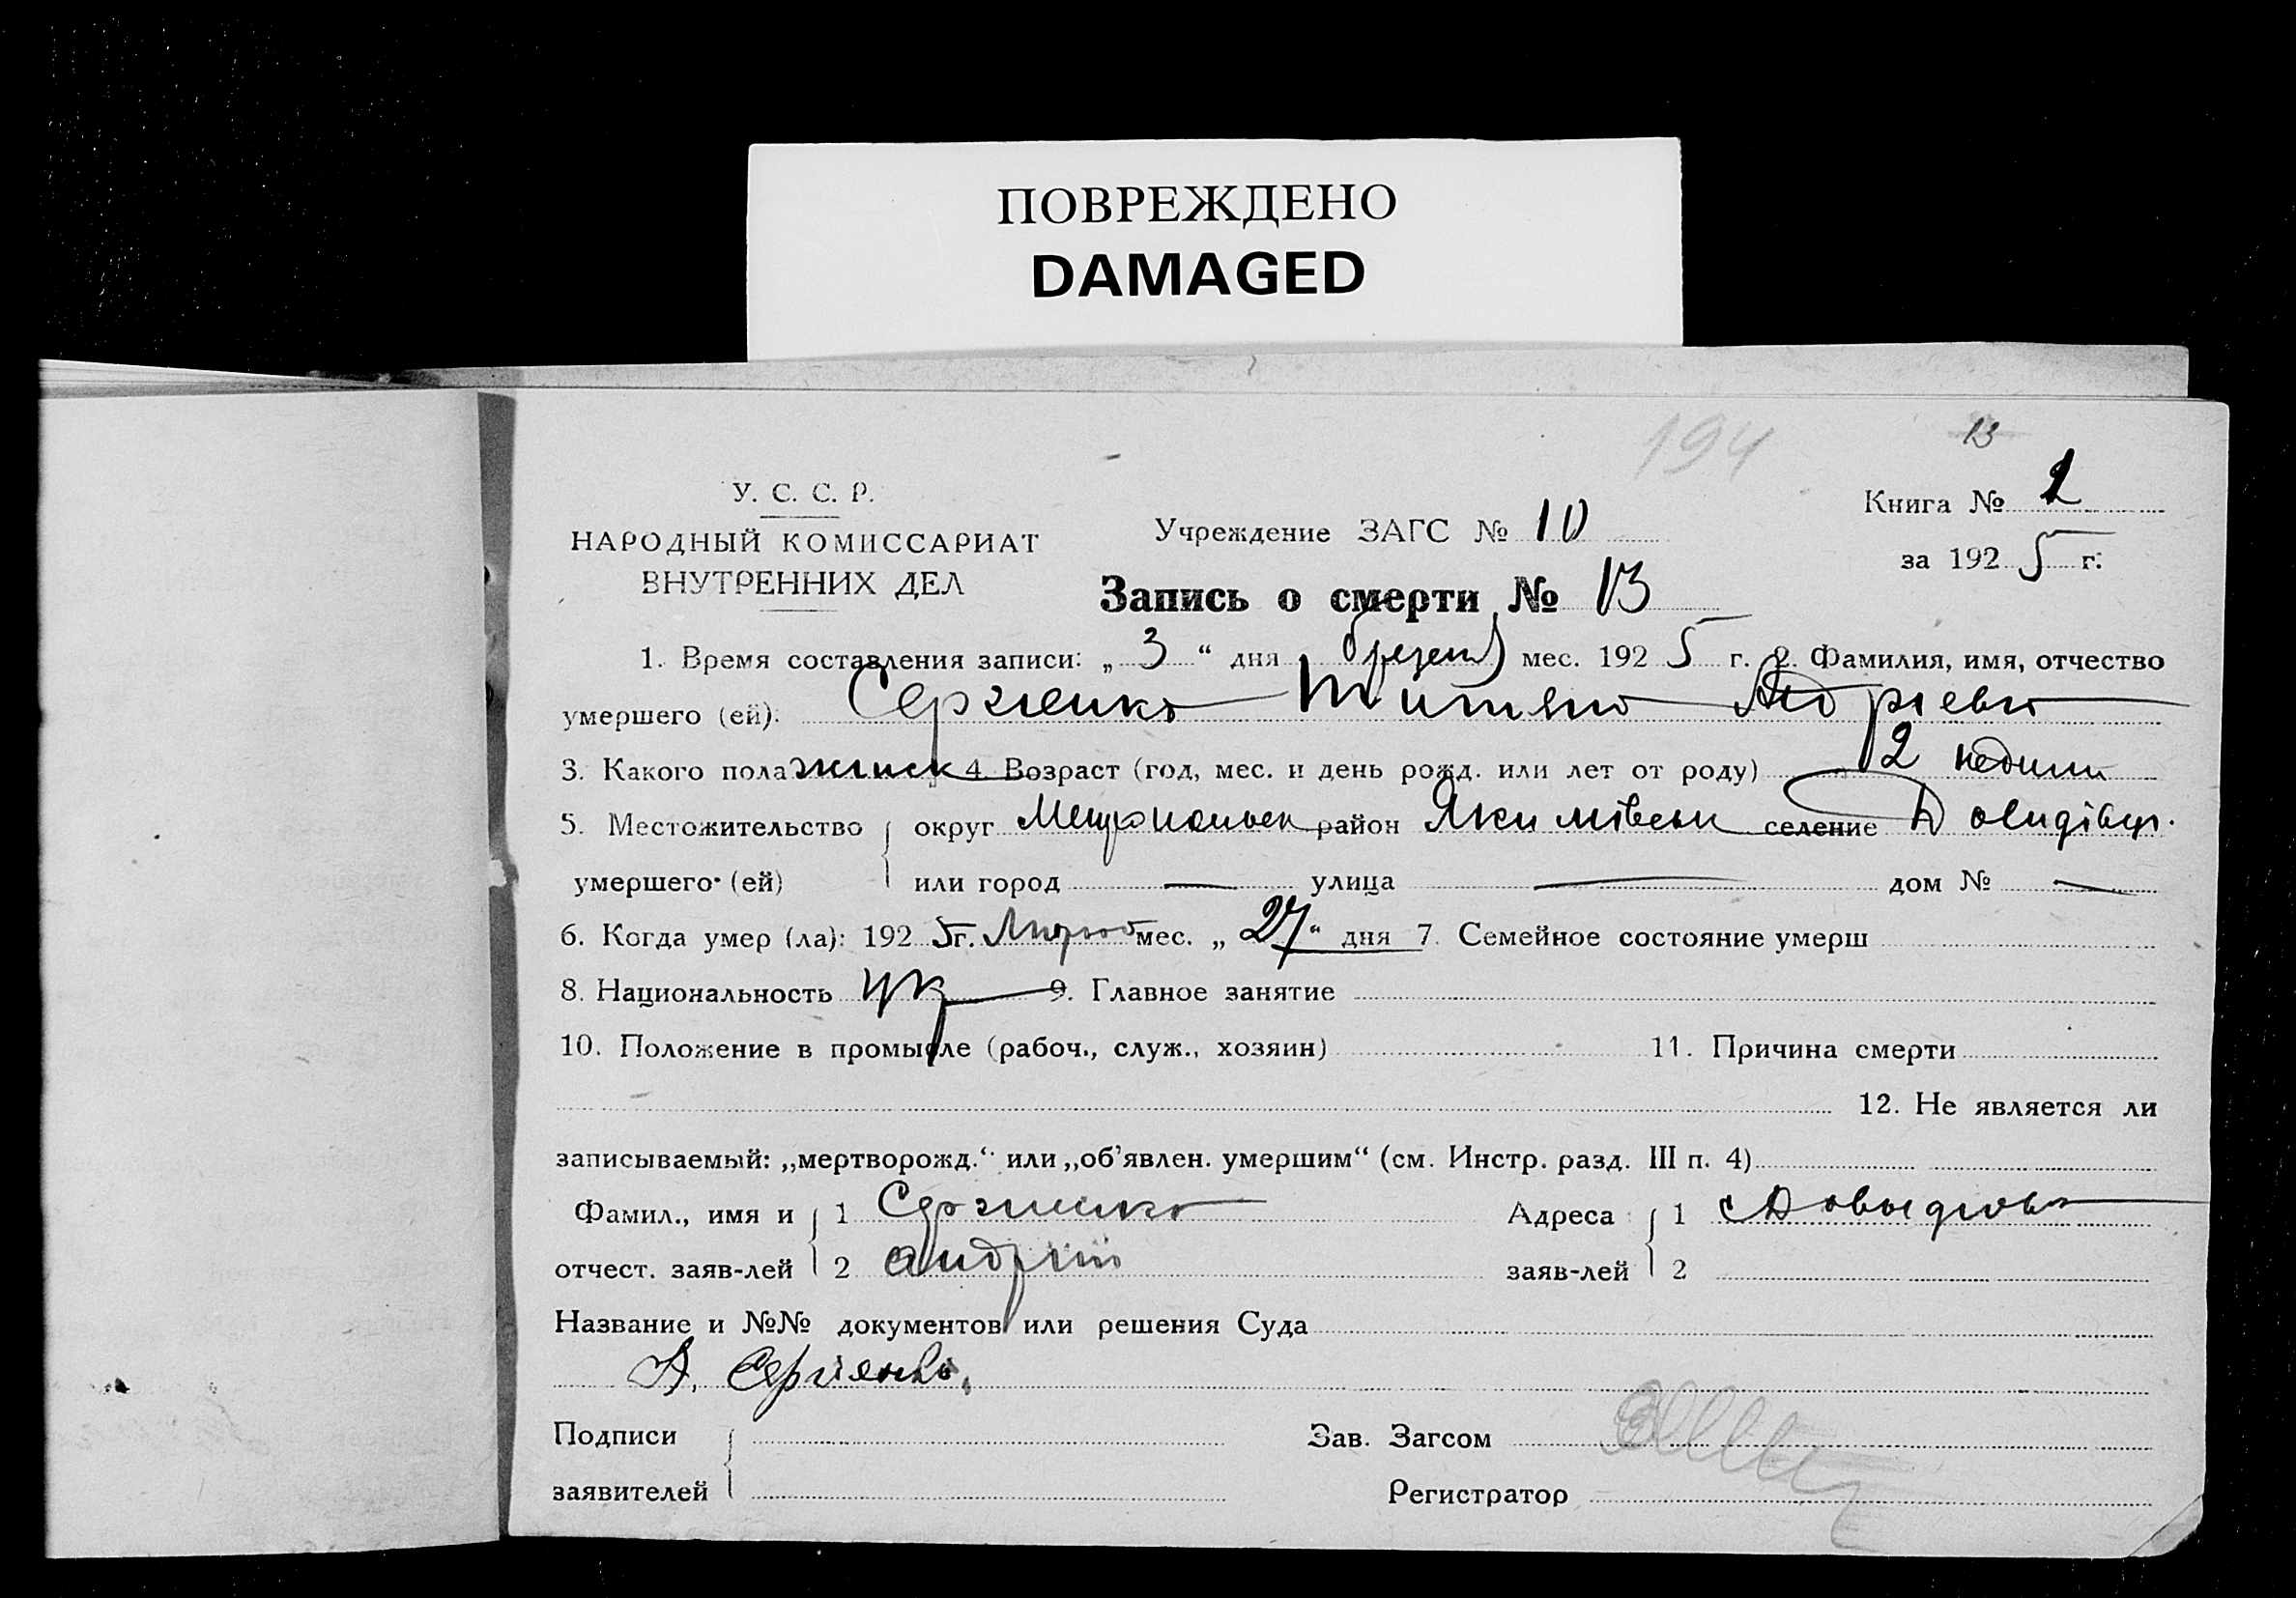 ПОВРЕЖДЕНО
DAMAGED
194 13
У. С. С. Р.
НАРОДНЫЙ КОМИССАРИАТ
ВНУТРЕННИХ ДЕЛ
Учреждение ЗАГС № 10
Книга №
за 1925 г.
Запись о смерти № 13
1. Время составления записи: „3“ дня березня мес. 1925 г. 2. Фамилия, имя, отчество
умершего (ей): Сергієнко
3. Какого пола жіноч 4. Возраст (год, мес. и день рожд. или лет от роду) 2 неділи
5. Местожительство округ район Якимівськ селение
умершего (ей) или город — улица — дом № —
6. Когда умер (ла): 1925 г. Лютого мес. „27“ дня 7. Семейное состояние умерш
8. Национальность Укр 9. Главное занятие
10. Положение в промысле (рабоч., служ., хозяин) 11. Причина смерти
12. Не является ли
записываемый: „мертворожд.“ или „об'явлен. умершим“ (см. Инстр. разд. III п. 4)
Фамил., имя и 1 Сергиенко Адреса 1
отчест. заяв-лей 2 Андрій заяв-лей 2
Название и №№ документов или решения Суда
А. Сергиенко.
Подписи Зав. Загсом
заявителей Регистратор